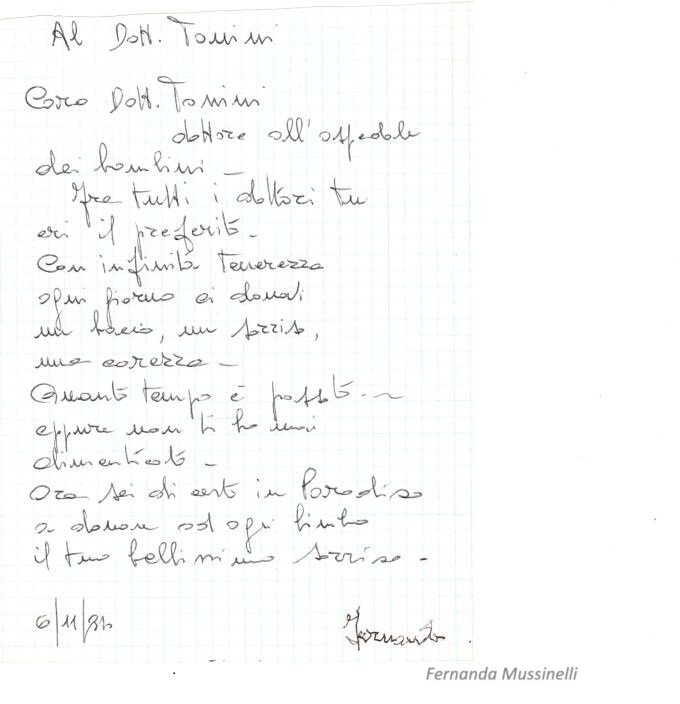 Al Dott. Tonini
Caro Dott. Tonini
dottore all'ospedale
dei bambini -
Fra tutti i dottori tu
eri il preferito -
Con infinita tenerezza
ogni giorno ci donavi
un bacio, un sorriso,
una carezza -
Quanto tempo è passato - ~
eppure non ti ho mai
dimenticato -
Ora sei di certo in Paradiso
a donare ad ogni bimbo
il tuo bellissimo sorriso -
6/11/
Fernanda
Fernanda Mussinelli